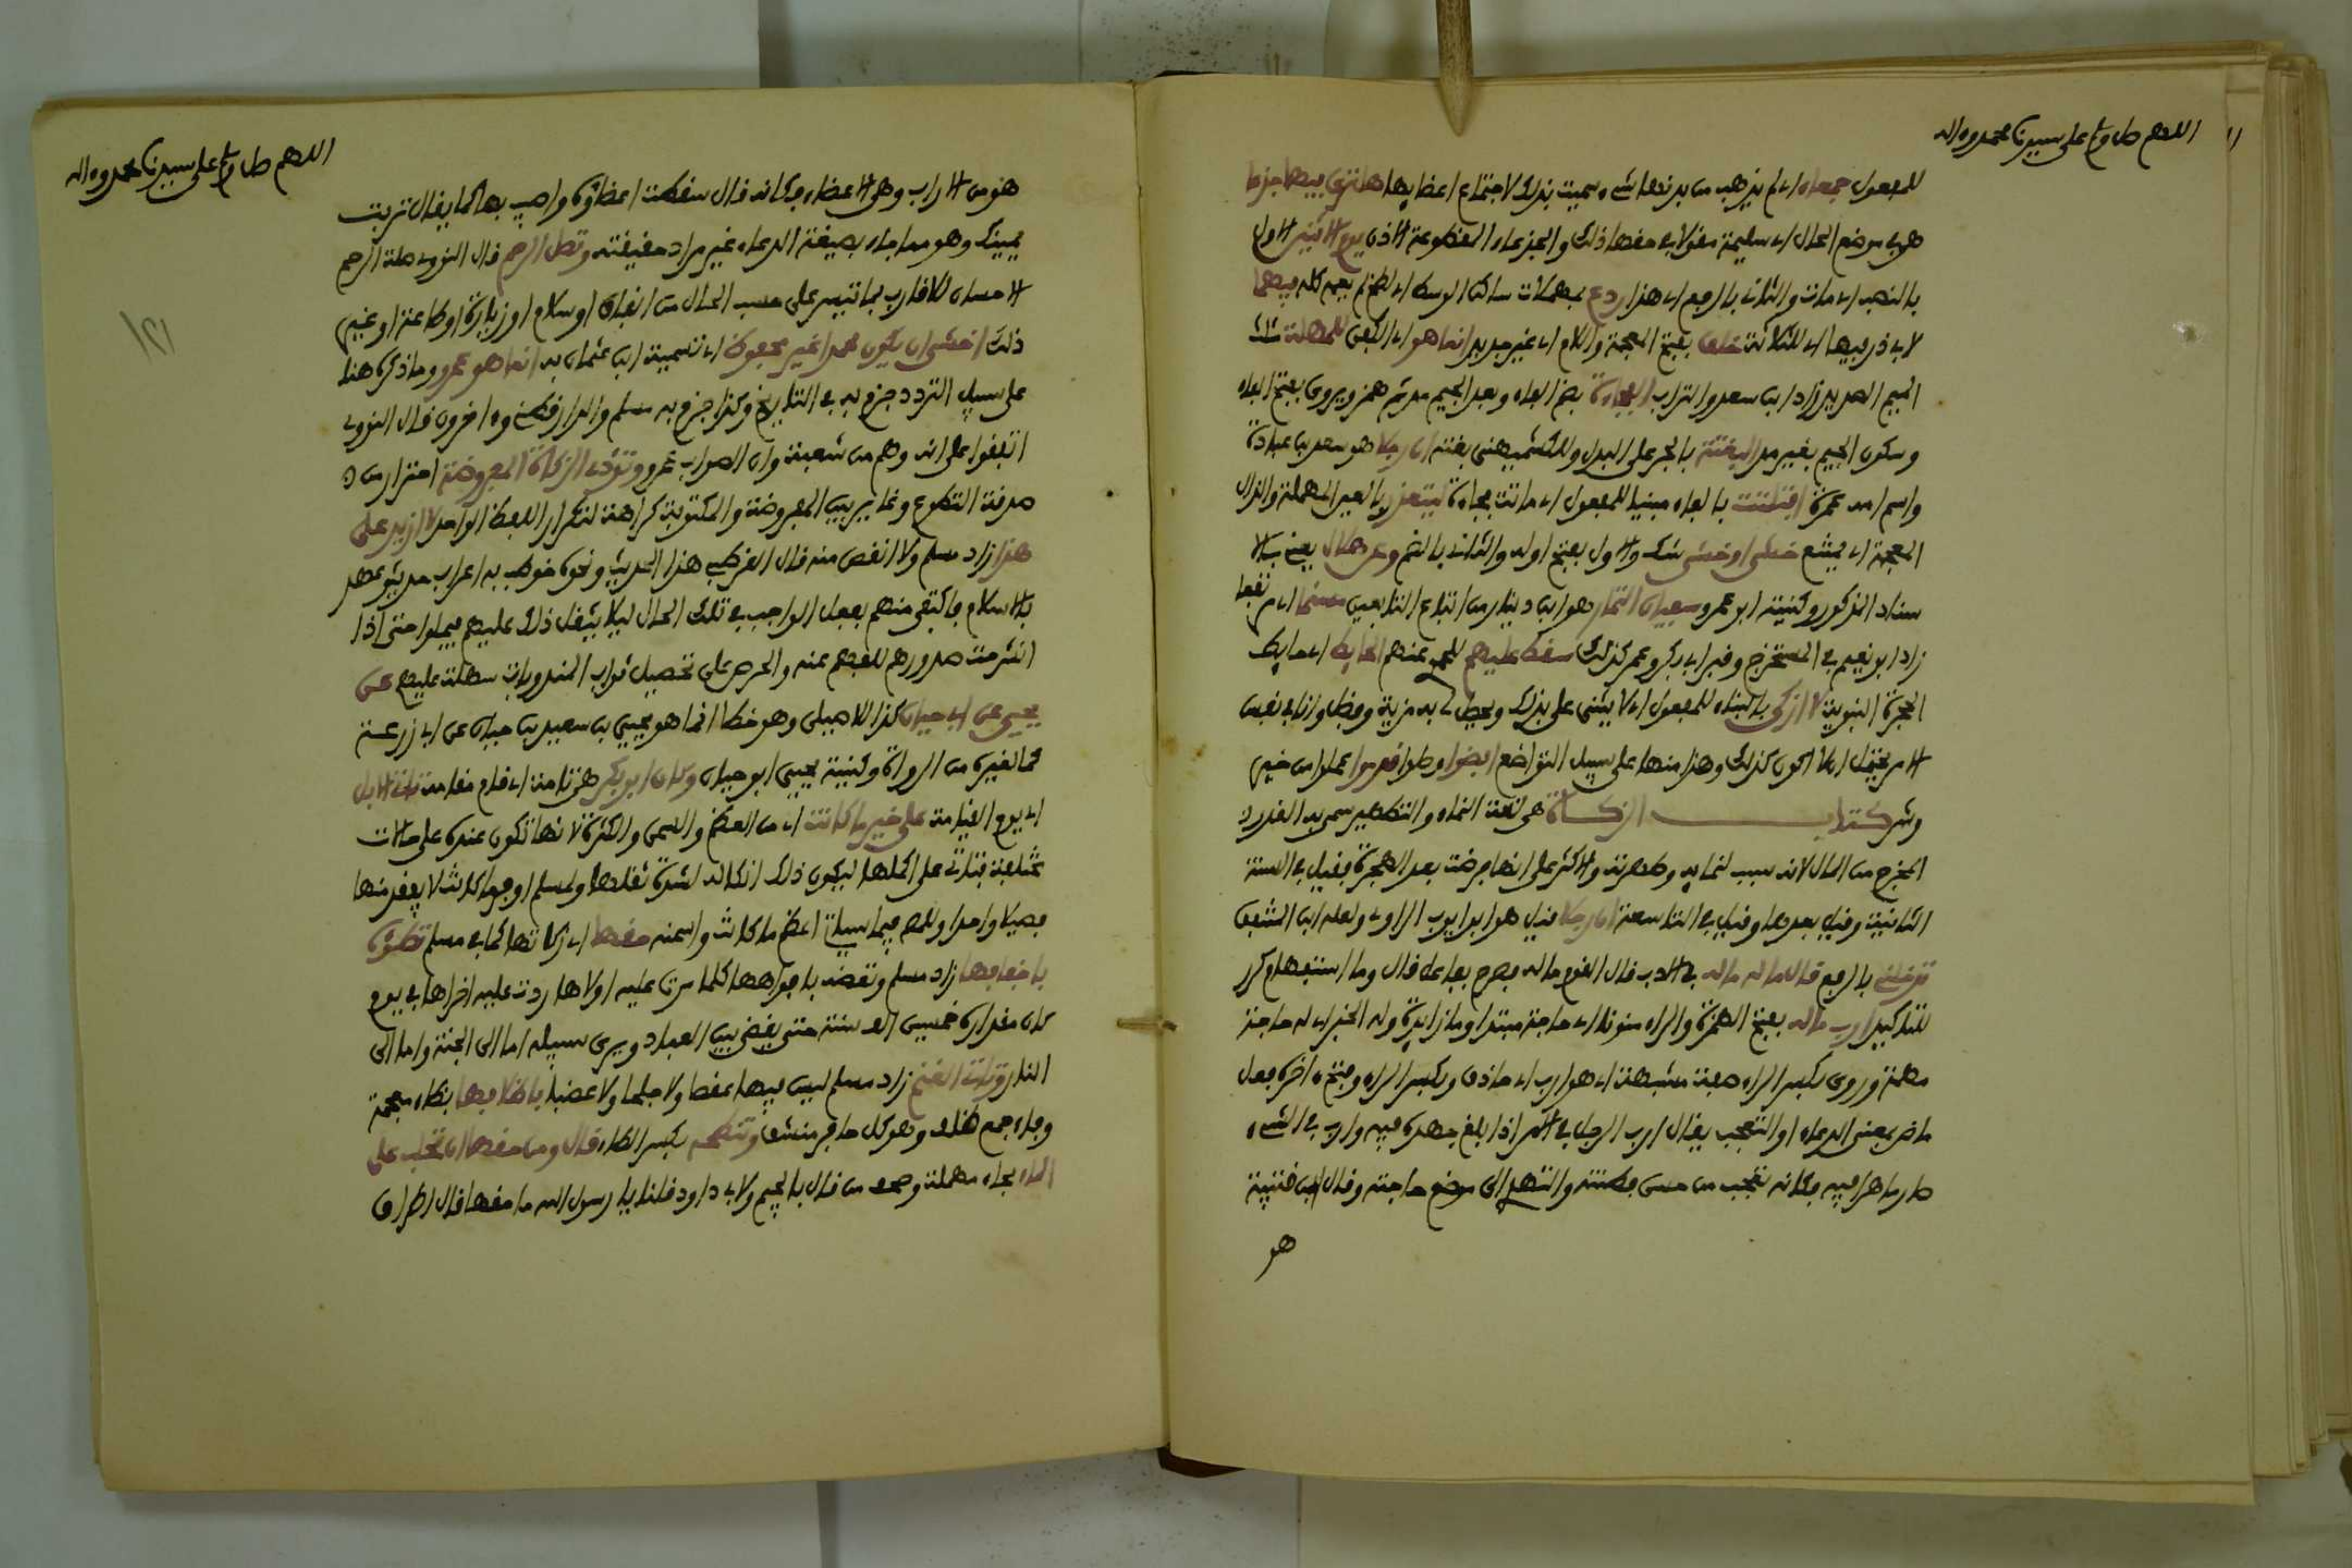 اللهم صل وسلم على سيدنا محمد وءاله
للمفعول جمعاء اي لم يذهب من بدنها شيء سميت بذلك لاجتماع اعضايها هل ترى فيها جدعا
هو في موضع الحال اي سليمة مقولا في حقها ذلك والجدعاء المقطوعة الاذن يوم الاثنين الاول
بالنصب اي مات والثاني بالرفع اي هذا ردع بمهملات ساكن الوسط اي لطخ لم يعمه كله فيهما
لابي ذر فيها اي للثلاثة خلق بفتح المعجمة واللام اي غير جديد انما هو اي الكفن للمهلة مثلث
الميم الصديد زاد ابن سعد والتراب الفجاءة بضم الفاء وبعد الجيم مد ثم همز ويروى بفتح الفاء
وسكون الجيم بغير مد البغتة بالجر على البدل وللكشميهني بغتة ان رجلا هو سعد بن عبادة
واسم امه عمرة افتلتت بالفاء مبنيا للمفعول اي ماتت فجاءة ليتعذر بالعين المهملة والذال
المعجمة اي يمتنع خشي او خشي شك والاول بفتح اوله والثاني بالضم وعن هلال يعني بالا
سناد المذكور وكنيته ابو عمرو سفيان التمار هو ابن دينار من اتباع التابعين مسنما اي مرتفعا
زاد ابو نعيم في المستخرج وقبر ابي بكر وعمر كذلك سقط عليهم للحموي عنهم الحايط اي حايط
الحجرة النبوية لا ازكى بالبناء للمفعول اي لا يثنى علي بذلك ويجعل لي به مزية وفضل وانا في نفس
الامر يحتمل ان لا اكون كذلك وهذا منها على سبيل التواضع افضوا وصلوا قدموا عملوا من خير
وشر كتاب الزكاة هي لغة النماء والتطهير سمي به القدر
المخرج من المال لانه سبب لنمايه وطهرته والاكثر على انها فرضت بعد الهجرة فقيل في السنة
الثانية وقيل بعدها وقيل في التاسعة ان رجلا قيل هو ابو ايوب الراوي ولعله ابن المنتفق
تدخلني بالرفع قال ماله ماله في الادب فقال القوم ماله فصرح بفاعل قال وما استفهام وكرر
للتاكيد ارب ماله بفتح الهمزة والراء منونا اي حاجة مبتدا وما زايدة وله الخبر اي له حاجة
مهمة وروي بكسر الراء صفة مشبهة اي هو ارب اي حاذق وبكسر الراء وفتح ءاخره فعل
ماض بمعنى الدعاء او التعجب يقال ارب الرجل في الامر اذا بلغ جهده فيه وارب في الشيء
صار ماهرا فيه فكانه تعجب من حسن فطنته والتهدي الى موضع حاجته وقال ابن قتيبة
هو
اللهم صل وسلم على سيدنا محمد وءاله
هو من الاراب وهي الاعضاء فكانه قال سقطت اعضاؤه واصيب بها كما يقال تربت
يمينك وهو مما جاء بصيغة الدعاء غير مراد حقيقته وتصل الرحم قال النووي صلة الرحم
الاحسان للاقارب بما تيسر على حسب الحال من انفاق او سلام او زيارة او طاعة او غير
ذلك اخشى ان يكون محمد غير محفوظ اي تسمية ابن عثمان به انما هو عمرو وما ذكره هنا
على سبيل التردد جزم به في التاريخ وكذا جزم به مسلم والدارقطني وءاخرون قال النووي
اتفقوا على انه وهم من شعبة وان الصواب عمرو وتؤدي الزكاة المفروضة احتراز من
صدقة التطوع وغاير بين المفروضة والمكتوبة كراهة لتكرار اللفظ الواحد لا ازيد على
هذا زاد مسلم ولا انقص منه قال القرطبي هذا الحديث ونحوه خوطب به اعراب حديثو عهد
بالاسلام فاكتفى منهم بفعل الواجب في تلك الحال ليلا يثقل ذلك عليهم فيملوا حتى اذا
انشرحت صدورهم للفهم عنه والحرص على تحصيل ثواب المندوبات سهلت عليهم عن
يحيى عن ابي حيان كذا للاصيلي وهو خطا انما هو يحيى بن سعيد بن حيان عن ابي زرعة
كما لغيره من الرواة وكنية يحيى ابو حيان وكان ابو بكر هي تامة اي قام مقامه تاتي الابل
اي يوم القيامة على خير ما كانت اي من العظم والسمن والكثرة لانها تكون عنده على حالات
مختلفة فتاتي على اكملها ليكون ذلك انكا له لشدة ثقلها ولمسلم اوفر ما كانت لا يفقد منها
فصيلا واحدا وللمص فيما سياتي اعظم ما كانت واسمنه حقها اي زكاتها كما في مسلم تطؤه
باخفافها زاد مسلم وتعضه بافواهها كلما مرت عليه اولاها ردت عليه اخراها في يوم
كان مقداره خمسين الف سنة حتى يقضى بين العباد ويرى سبيله اما الى الجنة واما الى
النار وتاتي الغنم زاد مسلم ليس فيها عقصا ولا جلحا ولا عضبا باظلافها بظاء معجمة
وفاء جمع ظلف وهو كل حافر منشق وتنطحه بكسر الطاء قال ومن حقها ان تحلب على
الماء بحاء مهملة وصحف من قال بالجيم ولابي داود قلنا يا رسول الله ما حقها قال اطراق
١٢١